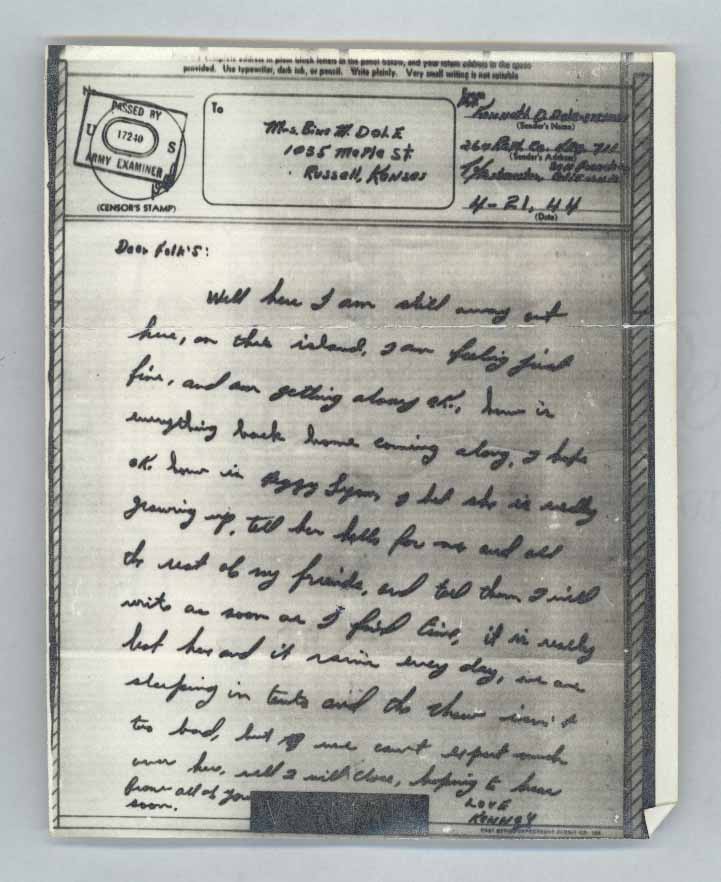 complete address in plain block letters in the panel below, and your return address in the space
provided. Use typewriter, dark ink, or pencil. Write plainly. Very small writing is not suitable
No.
PASSED BY
U S
17240
ARMY EXAMINER
(CENSOR'S STAMP)
To
Mrs. Bina M. DOLE
1035 Maple St
Russell, Kansas
From
Kenneth D. Dole
(Sender's Name)
(Sender's Address)
San Francisco
California
4-21, 44
(Date)
Dear Folk's:
Well here I am still away out
here, on this island, I am feeling just
fine, and am getting along OK., how is
everything back home coming along, I hope
OK. how is Peggy I bet she is really
growing up, tell her hello for me and all
the rest of my friends, and tell them I will
write as soon as I find time, it is really
hot here and it rains every day, we are
sleeping in tents and the chow isn't
too bad, but we can't expect much
over here, well I will close, hoping to hear
from all of you
soon.
LOVE
KENNY